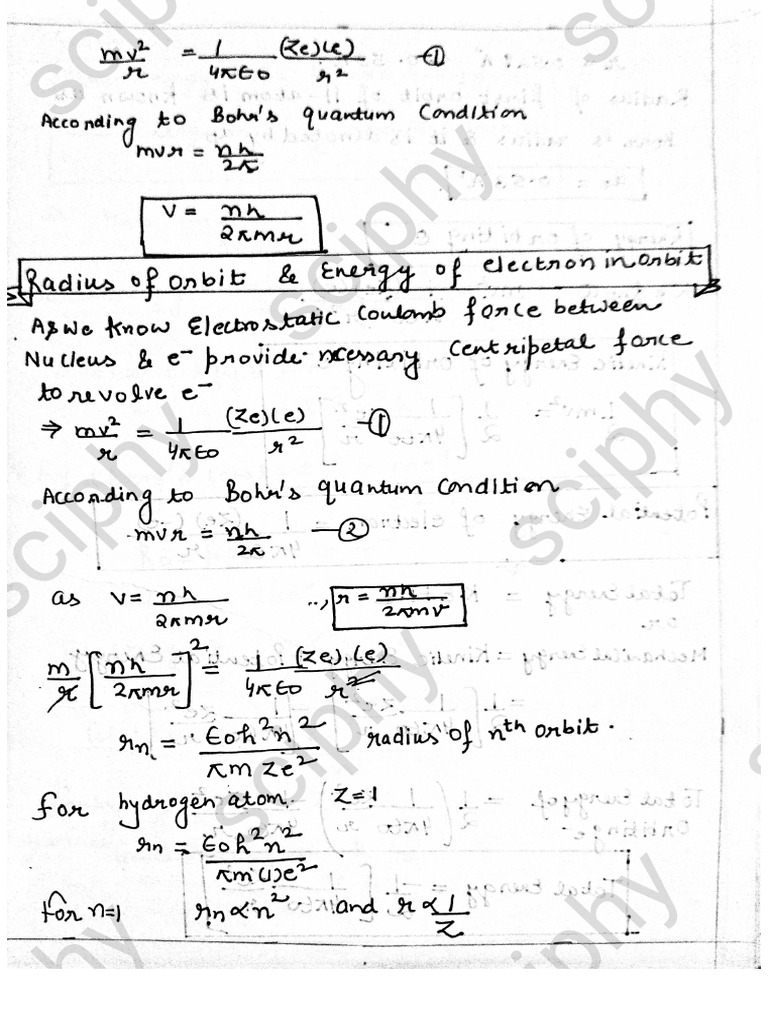 mv²/r = 1/4πϵ0 (Ze)(e)/r² —①
According to Bohr's quantum Condition
mvr = nh/2π
V = nh/2πmr
Radius of orbit & Energy of electron in orbit
As we know Electrostatic Coulomb force between
Nucleus & e⁻ provide ncessary centripetal force
to revolve e⁻
⇒ mv²/r = 1/4πϵ0 (Ze)(e)/r² —①
According to Bohr's quantum condition
mvr = nh/2π —②
as V = nh/2πmr ..., r = nh/2πmv
m/r [nh/2πmr]² = 1/4πϵ0 (Ze).(e)/r²
rn = ϵ0h²n²/πmZe² radius of nth orbit.
for hydrogen atom. Z=1
rn = ϵ0h²n²/πm(1)e²
for n=1 rn ∝ n² and r ∝ 1/Z
sciphy
sciphy
sciphy
sciphy
sciphy
sciphy